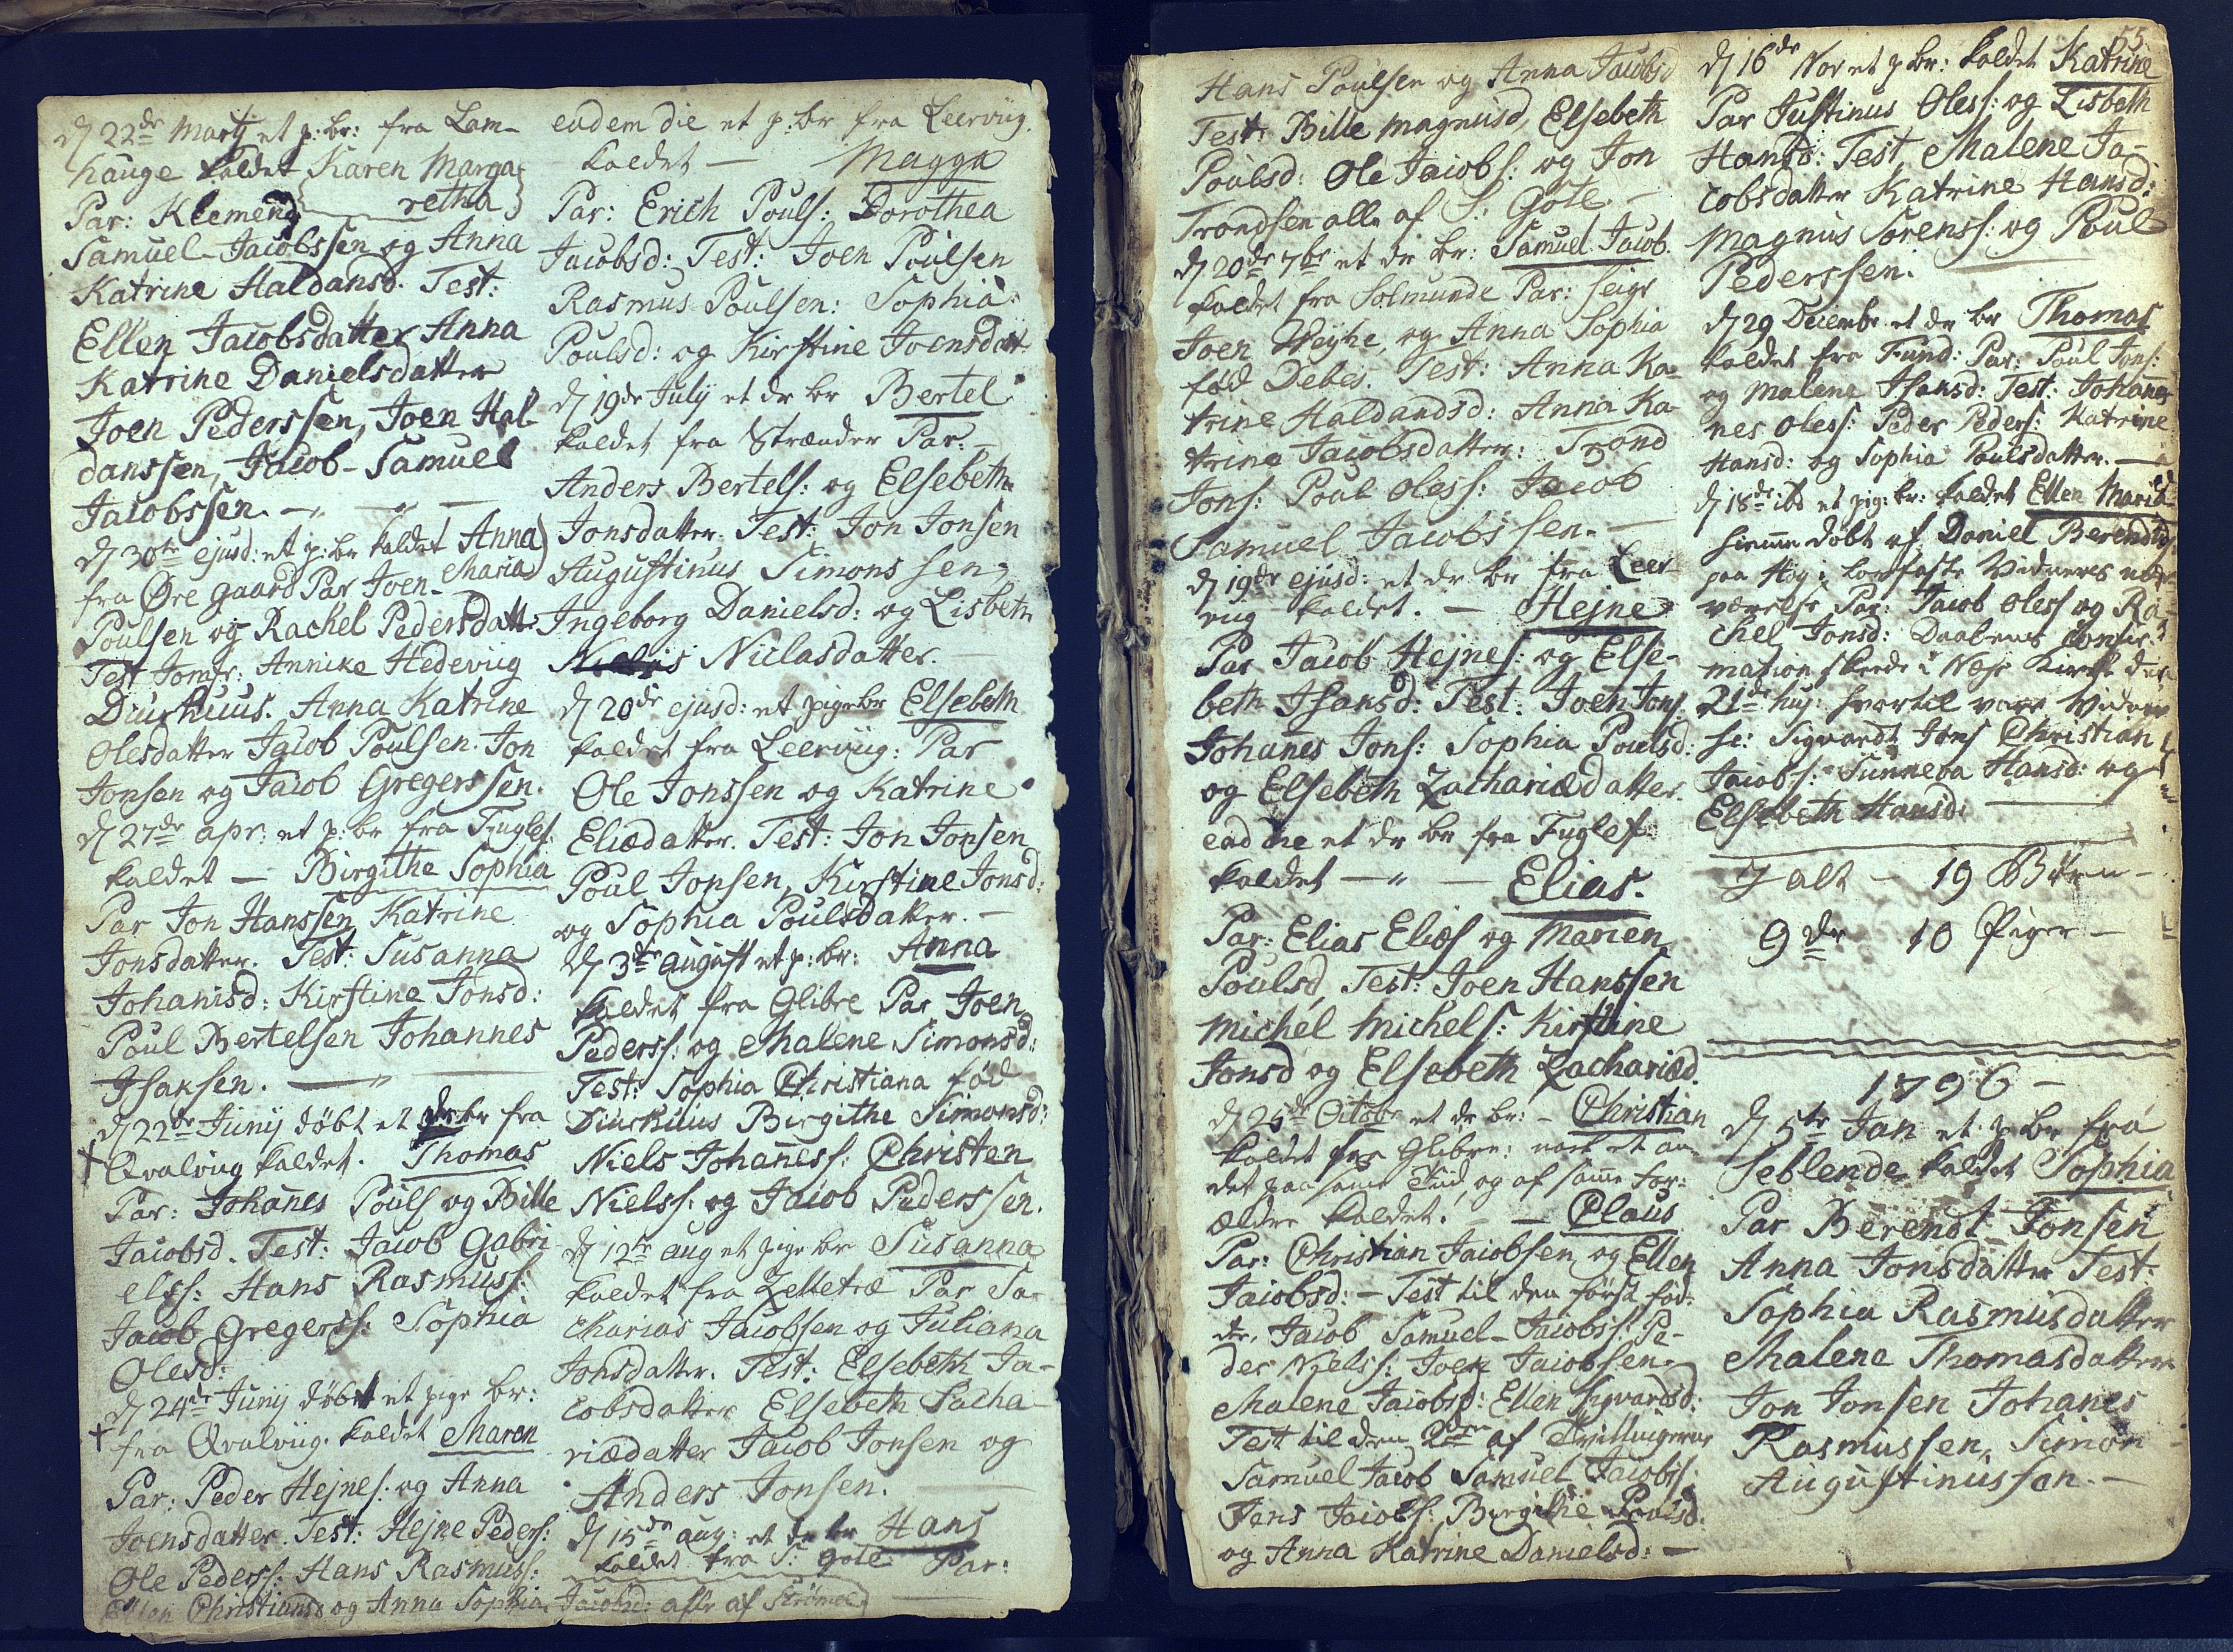 D 22de Martj et p: br: fra Lam-
hauge kaldet Karen Marga
retha
Par: Klemend
Samuel Jacobssen og Anna
Katrine Haldansd. Test:
Ellen Jacobsdatter Anna
Katrine Danielsdatter
Joen Pederssen, Joen Hal-
danssen, Jacob-Samuel
Jacobssen. — " —
D 30te ejusd: et p: br kaldet Anna
Maria
fra Øre gaard Par Joen
Poulsen og Rachel Pedersdatt:
Test Jomfr: Annike Hedevug
Diurhuus. Anna Katrine
Olesdatter Jacob Poulsen. Jon
Jonsen og Jacob Gregerssen.
D 27de apr: et p: br fra Fuglef:
kaldet — Birgithe Sophia
Par Jon Hanssen Katrine
Jonsdatter. Test: Susanna
Johanisd: Kirstine Jonsd:
Poul Bertelsen Johannes
Isaksen. — " —
D 22de Junij døbt et dr br fra
+ Qvalviig kaldet. Thomas
Par: Johanes Pouls og Bille
Jacobsd. Test: Jacob Gabri
elss: Hans Rasmuss:
Jacob Gregerss: Sophia
Olesd:
D 24de Junij døbt et pige br:
+ fra Qvalviig. kaldet Maren
Par: Peder Hejnes: og Anna
Joensdatter. Test: Hejne Peders:
Ole Peders: Hans Rasmuss:
Ellen Christiansd og Anna Sophia Jacobsd: alle af Strømoe
eadem die et p: br fra Leervug.
kaldet — Magga
Par: Erich Pouls: Dorothea
Jacobsd: Test: Joen Poulsen
Rasmus Poulsen: Sophia
Poulsd: og Kirstine Joensdatt:
D 19de July et dr br Bertel
kaldet fra Strænder Par. —
Anders Bertels: og Elsebeth
Jonsdatter. Test: Jon Jonsen
Augustinus Simonssen,
Ingeborg Danielsd: og Lisbeth
Niclasdatter. —
D 20de ejusd: et pige br Elsebeth
kaldet fra Leerviig: Par
Ole Jonssen og Katrine
Eliædatter. Test: Jon Jonsen
Poul Jonsen, Kirstine Jonsd:
og Sophia Poulsdatter. —
D 3te august et p: br: Anna
kaldet fra Glibre Par Joen
Pederss: og Malene Simonsd:
Test: Sophia Christiana fød
Diurhuus Birgithe Simonsd:
Niels Johaness: Christen
Nielss: og Jacob Pederssen.
D 12te aug et pige br Susanna
kaldet fra Zelletræ Par Sa
charias Jacobsen og Juliana
Jonsdatter. Test: Elsebeth Ja-
cobsdatter Elsebeth Sacha-
riædatter Jacob Jonsen og
Anders Jonsen. —
D 15de aug: et dr br Hans
kaldet fra S: Gøte Par:
55
Hans Poulsen og Anna Jacobsd
Test: Bille Magnusd, Elsebeth
Poulsd: Ole Jacobs: og Jon
Trondsen alle af S: Gøte. —
D 20de 7br et dr br: Samuel Jacob
kaldet fra Solmunde Par: Seigr
Joen Weyhe, og Anna Sophia
fød Debes. Test: Anna Ka-
trine Haldandsd: Anna Ka-
trine Jacobsdatter: Trond
Jons: Poul Oless: Jacob
Samuel Jacobssen. —
D 19de ejusd: et dr br fra Leer-
vug kaldet. — Hejne
Par Jacob Hejnes: og Else-
beth Isansd: Test. Joen Jons
Johanes Jons: Sophia Poulsd:
og Elsebeth Zachariædatter.
ead die et dr br fra Fuglef:
kaldet — " — Elias.
Par: Elias Elias og Maren
Poulsd, Test: Joen Hanssen
Michel Michels: Kirstine
Jonsd og Elsebeth Zachariæd.
D 25de Octobr et dr br: — Christian
kaldet fra Glibre: nock et an-
det paa same Tiid, og af same For-
ældre kaldet. — Claus
Par: Christian Jacobsen og Ellen
Jacobsd: — Test til den først fød-
te. Jacob Samuel-Jacobss: Pe-
der Niels: Joen Jacobsen
Malene Jacobsd: Ellen Sigvardsd:
Test til den 2den af Tvillingerne
Samuel Jacob Samuel Jacobs:
Jens Jacobs: Birgithe Poulsd.
og Anna Katrine Danielsd: —
D 16de Nov et p br: kaldet Katrine
Par Justinus Oless: og Lisbeth
Hansd: Test, Malene Ja-
cobsdatter Katrine Hansd:
Magnus Sørenss: og Poul
Pederssen.
D 29 Decembr et dr br Thomas
kaldet fra Fund: Par: Poul Jons:
og Malene Isansd: Test: Johan
nes Oless: Peder Peders: Katrine
Hansd: og Sophia Poulsdatter. —
D 18de ibd et pig: br: kaldet Ellen Maria
hiemme døbt af Daniel Berendts
paa Høg i toefaste Vidners nær-
værelse Par: Jacob Oless og Ra-
chel Jonsd: Daabens Confir-
mation skeede i Næs Kirke den
21de huj: hvortil vare Vidner
se: Sigvardt Jons Christian
Jacobs: Sunneva Hansd: og
Elsebeth Hansd:
I alt — 19 Børn —
9 dr 10 Piger —
1796 —
D 5te Jan et p br fra
Seblende kaldet Sophia
Par Berendt Jonsen
Anna Jonsdatter Test:
Sophia Rasmusdatter
Malene Thomasdatter
Jon Jonsen Johanes
Rasmussen, Simon
Augustinussen. —